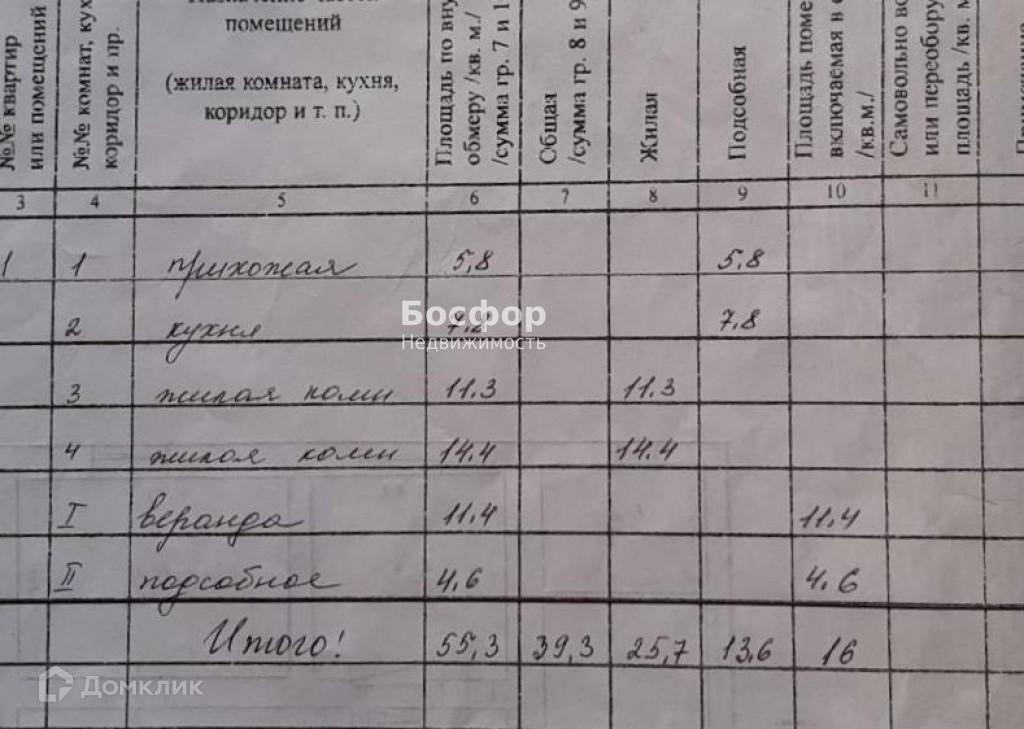 помещений
(жилая комната, кухня,
коридор и т. п.)
№№ квартир
или помещений
№№ комнат, кух
коридор и пр.
Площадь по вну
обмеру /кв. м./
/сумма гр. 7 и 1
Общая
/сумма гр. 8 и 9
Жилая
Подсобная
Площадь поме
включаемая в
/кв.м./
Самовольно
или переобору
площадь /кв. м
3 4 5 6 7 8 9 10 11
1 1 прихожая 5,8 5,8
2 кухня 7,8
3 жилая комн 11.3 11.3
4 жилая комн 14.4 14.4
I веранда 11.4 11.4
II подсобное 4.6 4.6
Итого! 55,3 39,3 25,7 13,6 16
Босфор
Недвижимость
Домклик